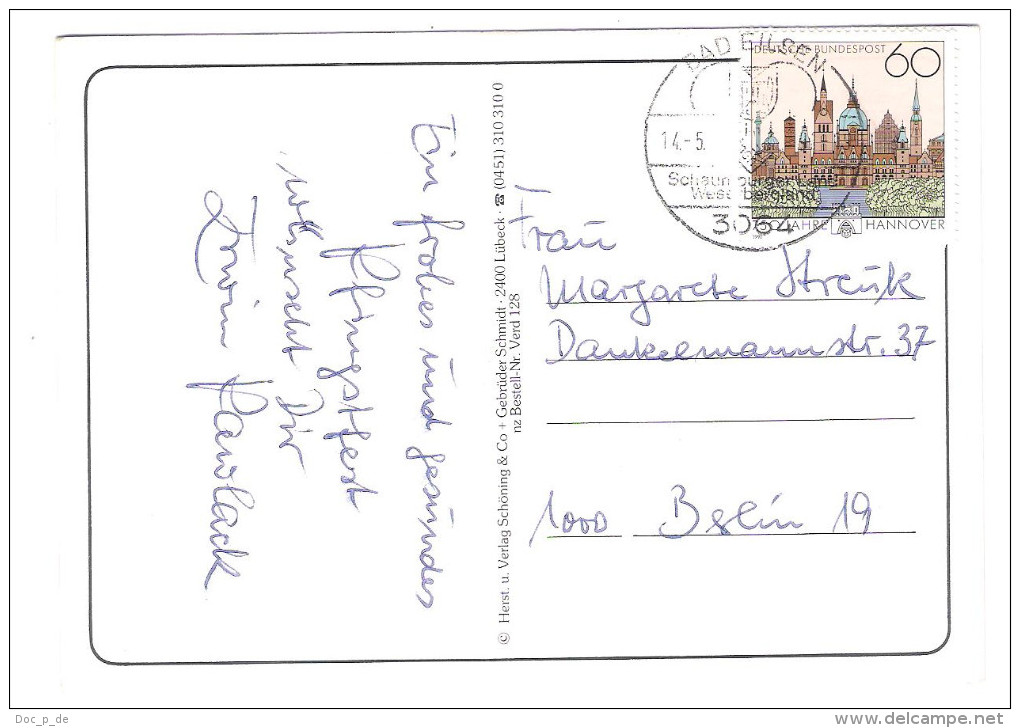 Ein frohes und gesundes
Pfingstfest
wünscht Dir
Erwin Pawlack
© Herst. u. Verlag Schöning & Co + Gebrüder Schmidt · 2400 Lübeck · ☎ (0451) 310 310 0
nz Bestell-Nr. Verd 128
BAD EILSEN
14.-5.
Schaumburger Land
Weserbergland
3064
DEUTSCHE BUNDESPOST 60
750 JAHRE HANNOVER
Frau
Margarete Streuk
Dankelmannstr. 37
1000 Berlin 19
Doc_p_de
www.delcampe.net